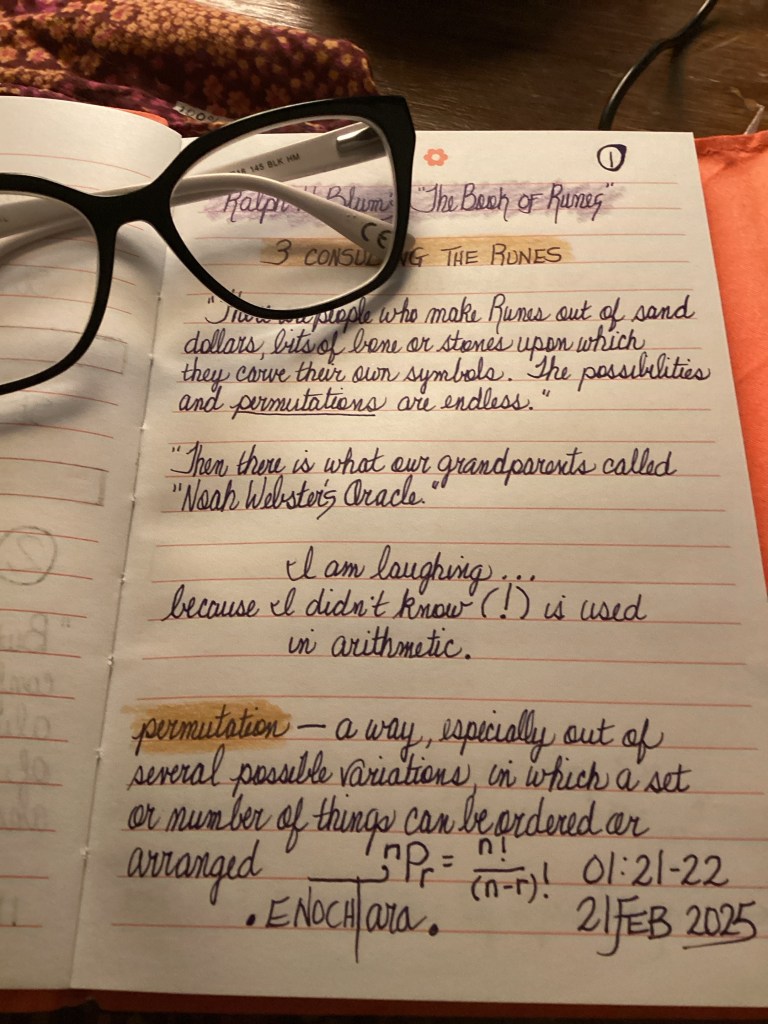 145 BLK HM
CE
1
Ralph H. Blum's "The Book of Runes"
3 CONSULTING THE RUNES
"There are people who make Runes out of sand
dollars, bits of bone or stones upon which
they carve their own symbols. The possibilities
and permutations are endless."
"Then there is what our grandparents called
"Noah Webster's Oracle."
I am laughing...
because I didn't know (!) is used
in arithmetic.
permutation — a way, especially out of
several possible variations, in which a set
or number of things can be ordered or
arranged nPr = n!/(n-r)! 01:21-22
.ENOCH|ara. 21FEB 2025
2